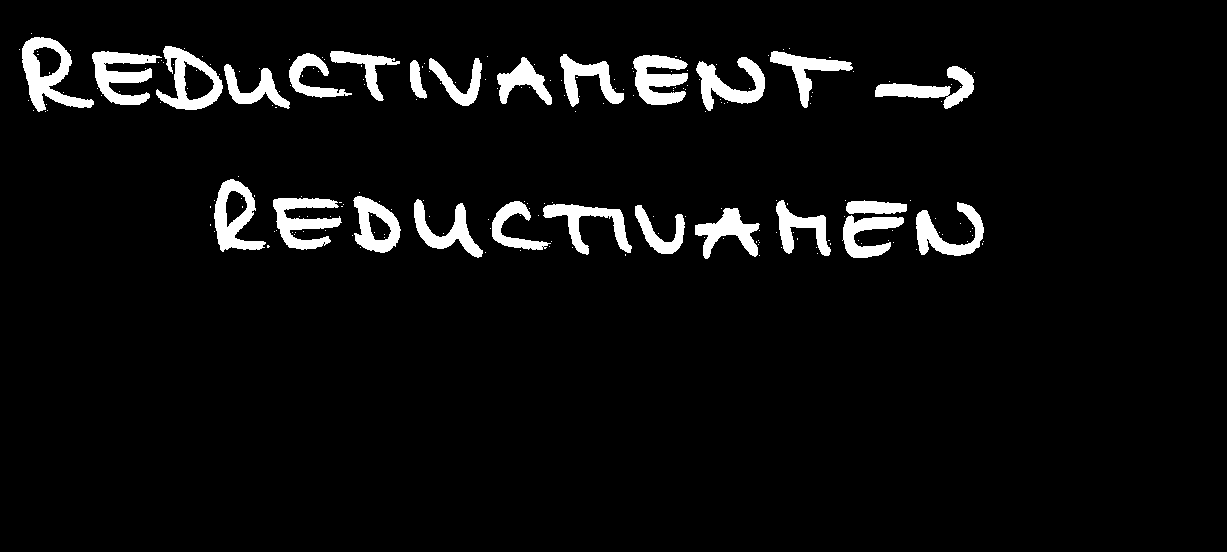 REDUCTIVAMENT →
REDUCTIVAMEN